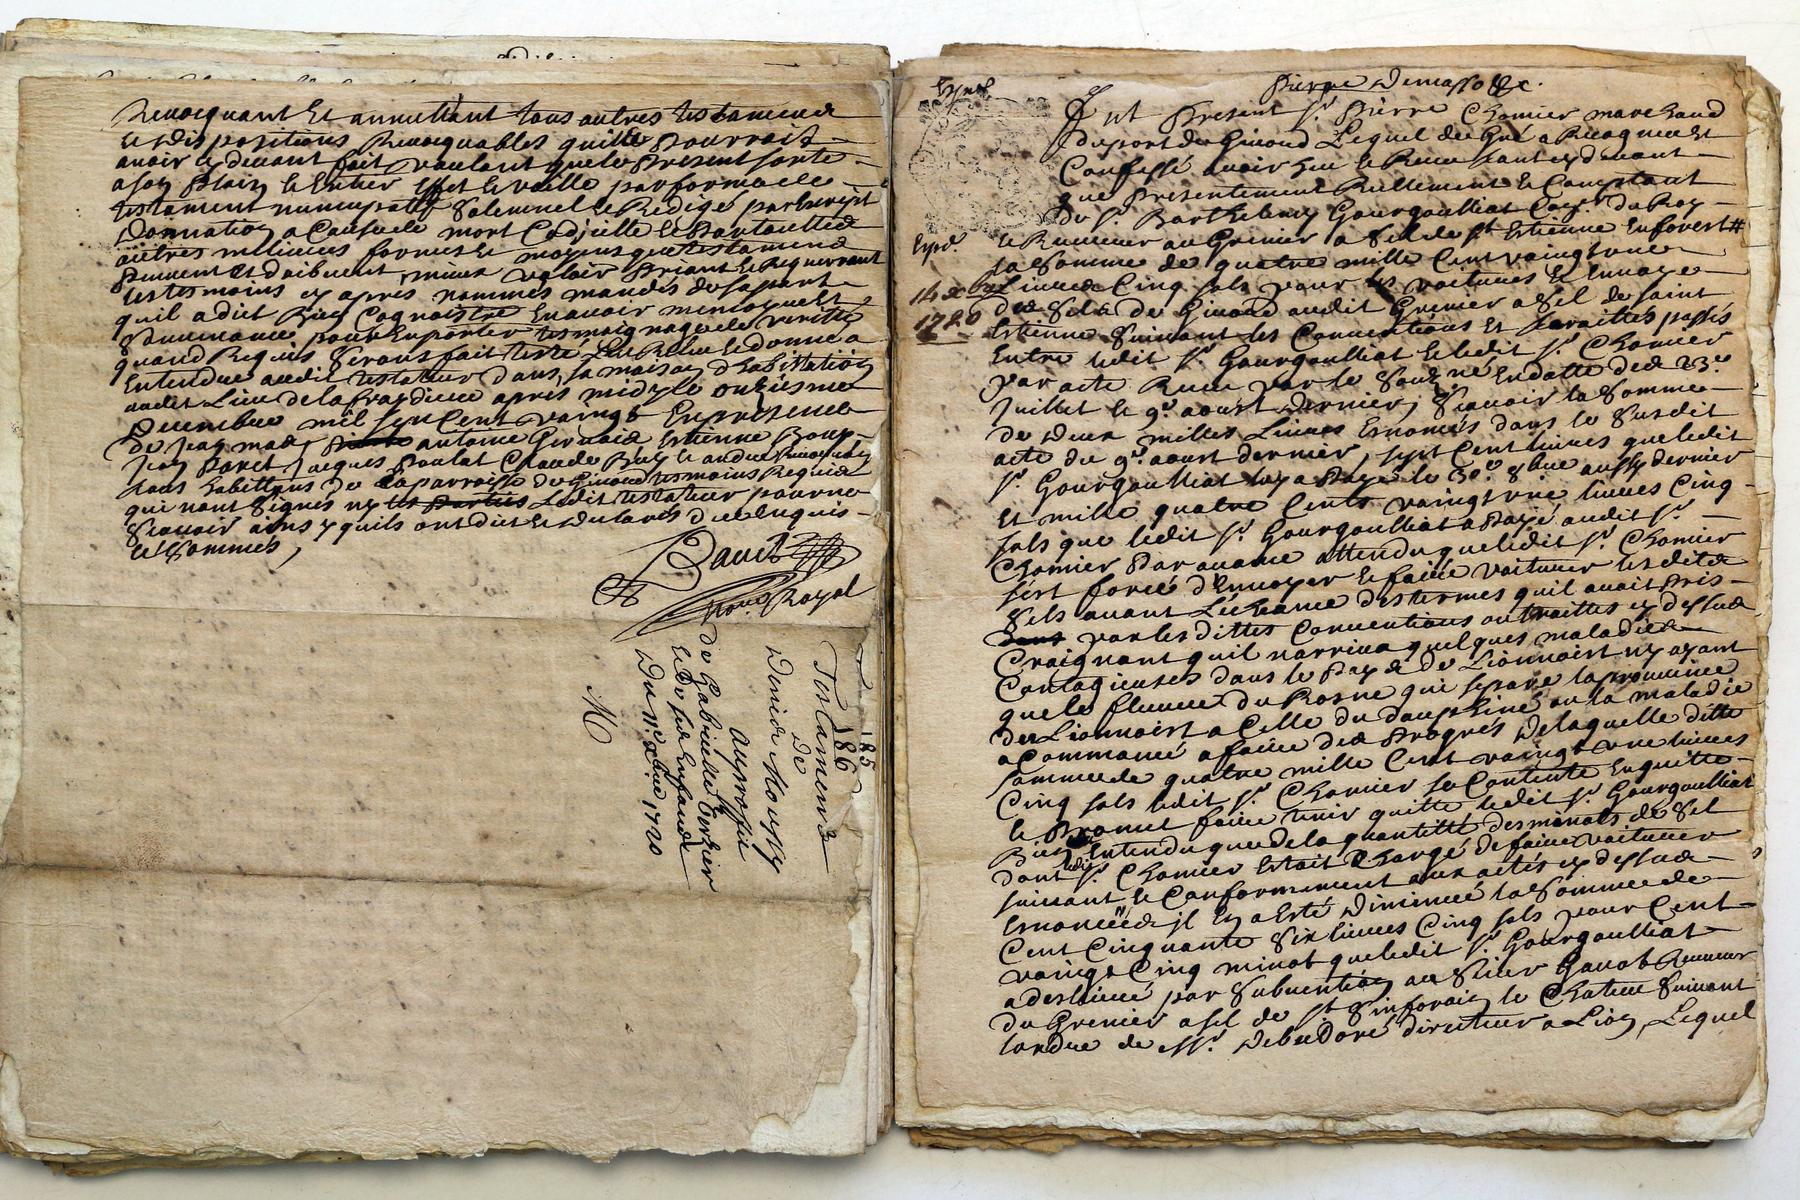 Revocquant Et annullant tous autres testaments
Et dispositions Revocquables quille Pourroit
avoir cy devant fait voulant que le Present sorte
a son Plain Et Entier Effet Et vaille par forme de
testament nuncupatif Solemnel Et Redigé par Escript
Donnation a Cause de mort Codicille Et Par toutte
autres milieures formes Et moyens que testaments
Peuvent Et doibvent mieux valoir Priant Et Requerrant
les tesmoins cy apres nommés mandés de sa part
qu'il a dict Bien Cognoistre En avoir memoire Et
Souvenance pour En porter tesmoignage de veritté
quand Requis Seront fait leu Releu Et donné a
Entendre audit testateur dans sa maison d'habittation
audit Lieu de la apres midy le onziesme
Decembre mil sept Cent vaingt En presence
De Jean mas antoine Gervais Estienne
Jean Jacques Poulat Claude
tous habittans de la parroisse de Givaud tesmoins Requis
qui n'ont signés ny les Parties Ledit testateur pour ne
Scavoir ainsy quils ont dit Et declarés de ce Enquis
Et Sommés,
David
Nore Royal
185
186
Testament
de
Denis Mousy
au proffit
de Gabrielle Terrier
Et De ses Enfands
Du 11e xbre 1720
M
Exped
Pierre Demasso &c.
fut Present Sr. Pierre Chomier marchand
du port de Givaud Lequel de Gré a Recogneu Et
Confessé avoir heu Et Receu tant cy devant
que Presentement Reellement Et Comptant
de Sr. Barthelemy Gourgoulliat Coner. du Roy
Et Receveur au Grenier a Sel de St Estienne En forest #
Exped.
la Somme de quatre mille Cent vaingt une
14 xbre
Livres Cinq sols pour les voitures Et Envoye
1720
des Sels de Givaud audit Grenier a Sel de Saint
Estienne Suivant les Conventions Et traittes passés
Entre ledit Sr. Gourgoulliat Et ledit Sr. Chomier
par acte Receu par le Soubsné En datte des 23e
Juillet Et 9e aoust dernier, Scavoir la Somme
de deux milles Livres Enoncés dans le Susdit
acte du 9e aoust dernier, sept Cent livres que ledit
Sr. Gourgoulliat luy a Payé le 30e 8bre aussy dernier
Et mille quatre Cents vaingt une livres Cinq
sols que ledit Sr. Gourgoulliat a Payé audit Sr.
Chomier Par avance attendu que ledit Sr. Chomier
s'est forcé d'Envoyer Et faire voiturer lesdits
Sels avant L'écheance des termes qu'il avait Pris
par lesdittes Conventions ou traittes cy dessus
Craignant qu'il n'arriva quelques maladies
Contagieuses dans le Pays de Lionnoist n'y ayant
que le fleuve du Rosne qui separe la province
de Lionnoist a Celle du Dauphiné ou la maladie
a Commancé a faire des Progrés De laquelle ditte
somme de quatre mille Cent vaingt une livres
Cinq sols ledit Sr. Chomier se Contente En quitte
Et Promet faire tenir quitte ledit Sr. Gourgoulliat
Bien Entendu que de la quantité des minots de Sel
dont ledit Sr. Chomier Estait Chargé de faire voiturer
suivant Et Conformement aux actes cy dessus
Enoncées il En a Esté Diminué la Somme de
Cent Cinquante Six livres Cinq sols pour Cent
vaingt Cinq minot que ledit Sr. Gourgoulliat
a deslivré par Subvention au Sieur Gavot Receveur
du Grenier a sel de St Sinforain le Chateau Suivant
lordre de Mr. directeur a Lion, Lequel